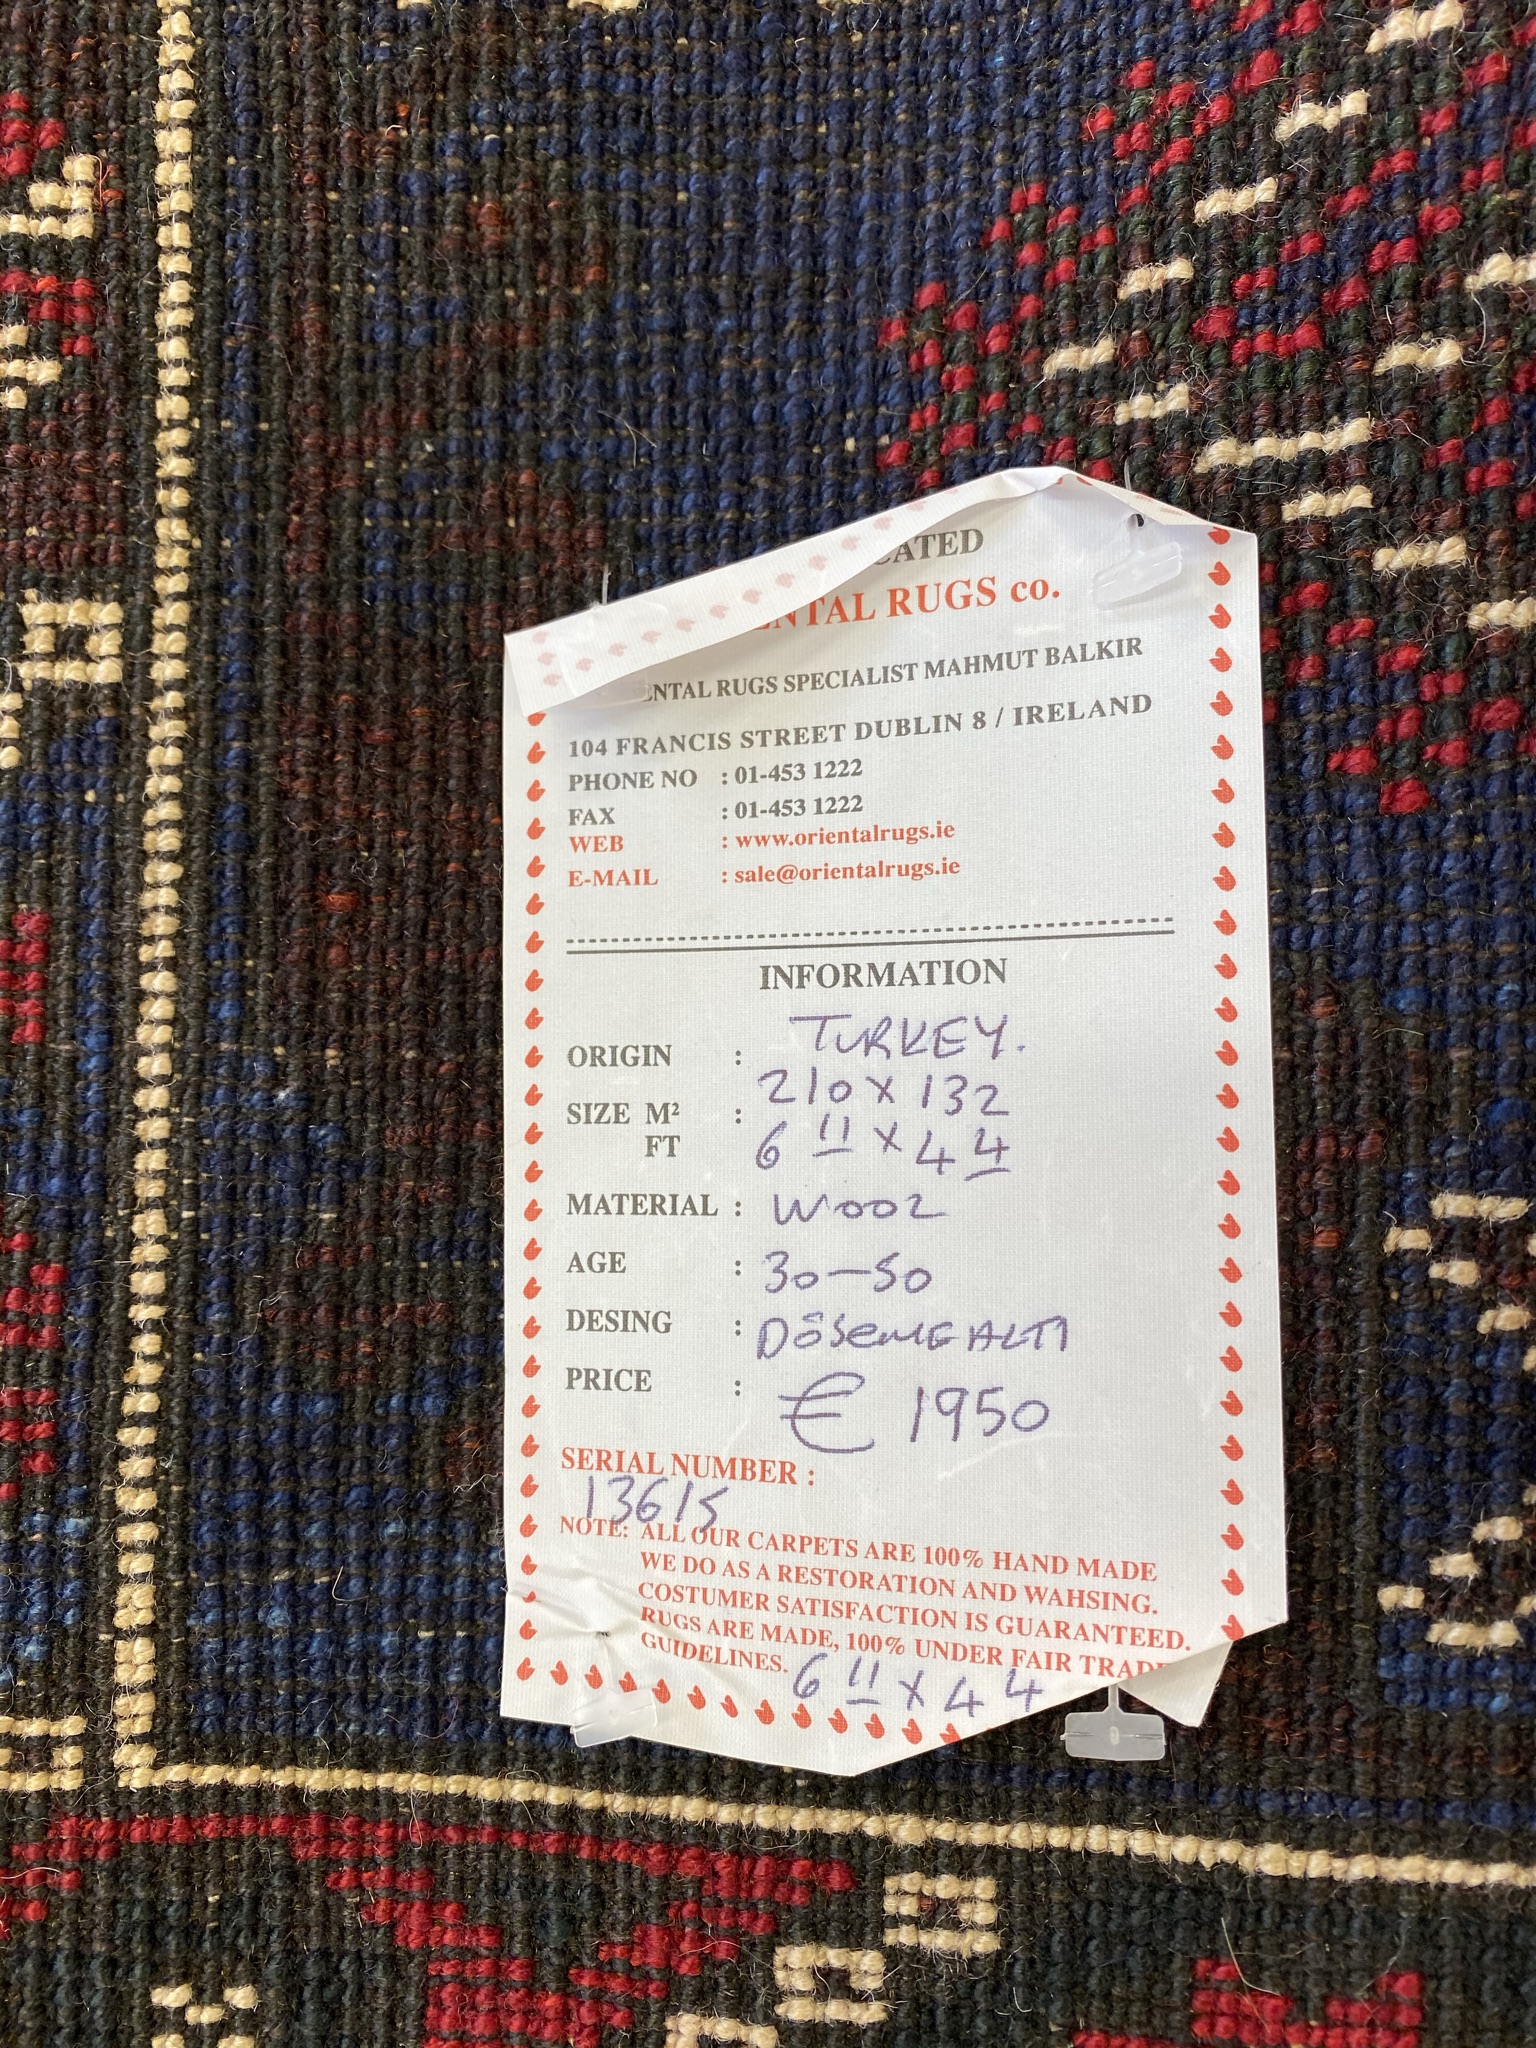 CATED
ENTAL RUGS co.
ENTAL RUGS SPECIALIST MAHMUT BALKIR
104 FRANCIS STREET DUBLIN 8 / IRELAND
PHONE NO : 01-453 1222
FAX : 01-453 1222
WEB : www.orientalrugs.ie
E-MAIL : sale@orientalrugs.ie
INFORMATION
ORIGIN : TURKEY.
SIZE M² : 210 x 132
FT 6 11 x 4 4
MATERIAL : WOOL
AGE : 30-50
DESING : DÖSEMEALTI
PRICE : € 1950
SERIAL NUMBER :
13615
NOTE: ALL OUR CARPETS ARE 100% HAND MADE
WE DO AS A RESTORATION AND WAHSING.
COSTUMER SATISFACTION IS GUARANTEED.
RUGS ARE MADE, 100% UNDER FAIR TRADE
GUIDELINES. 6 11 x 4 4